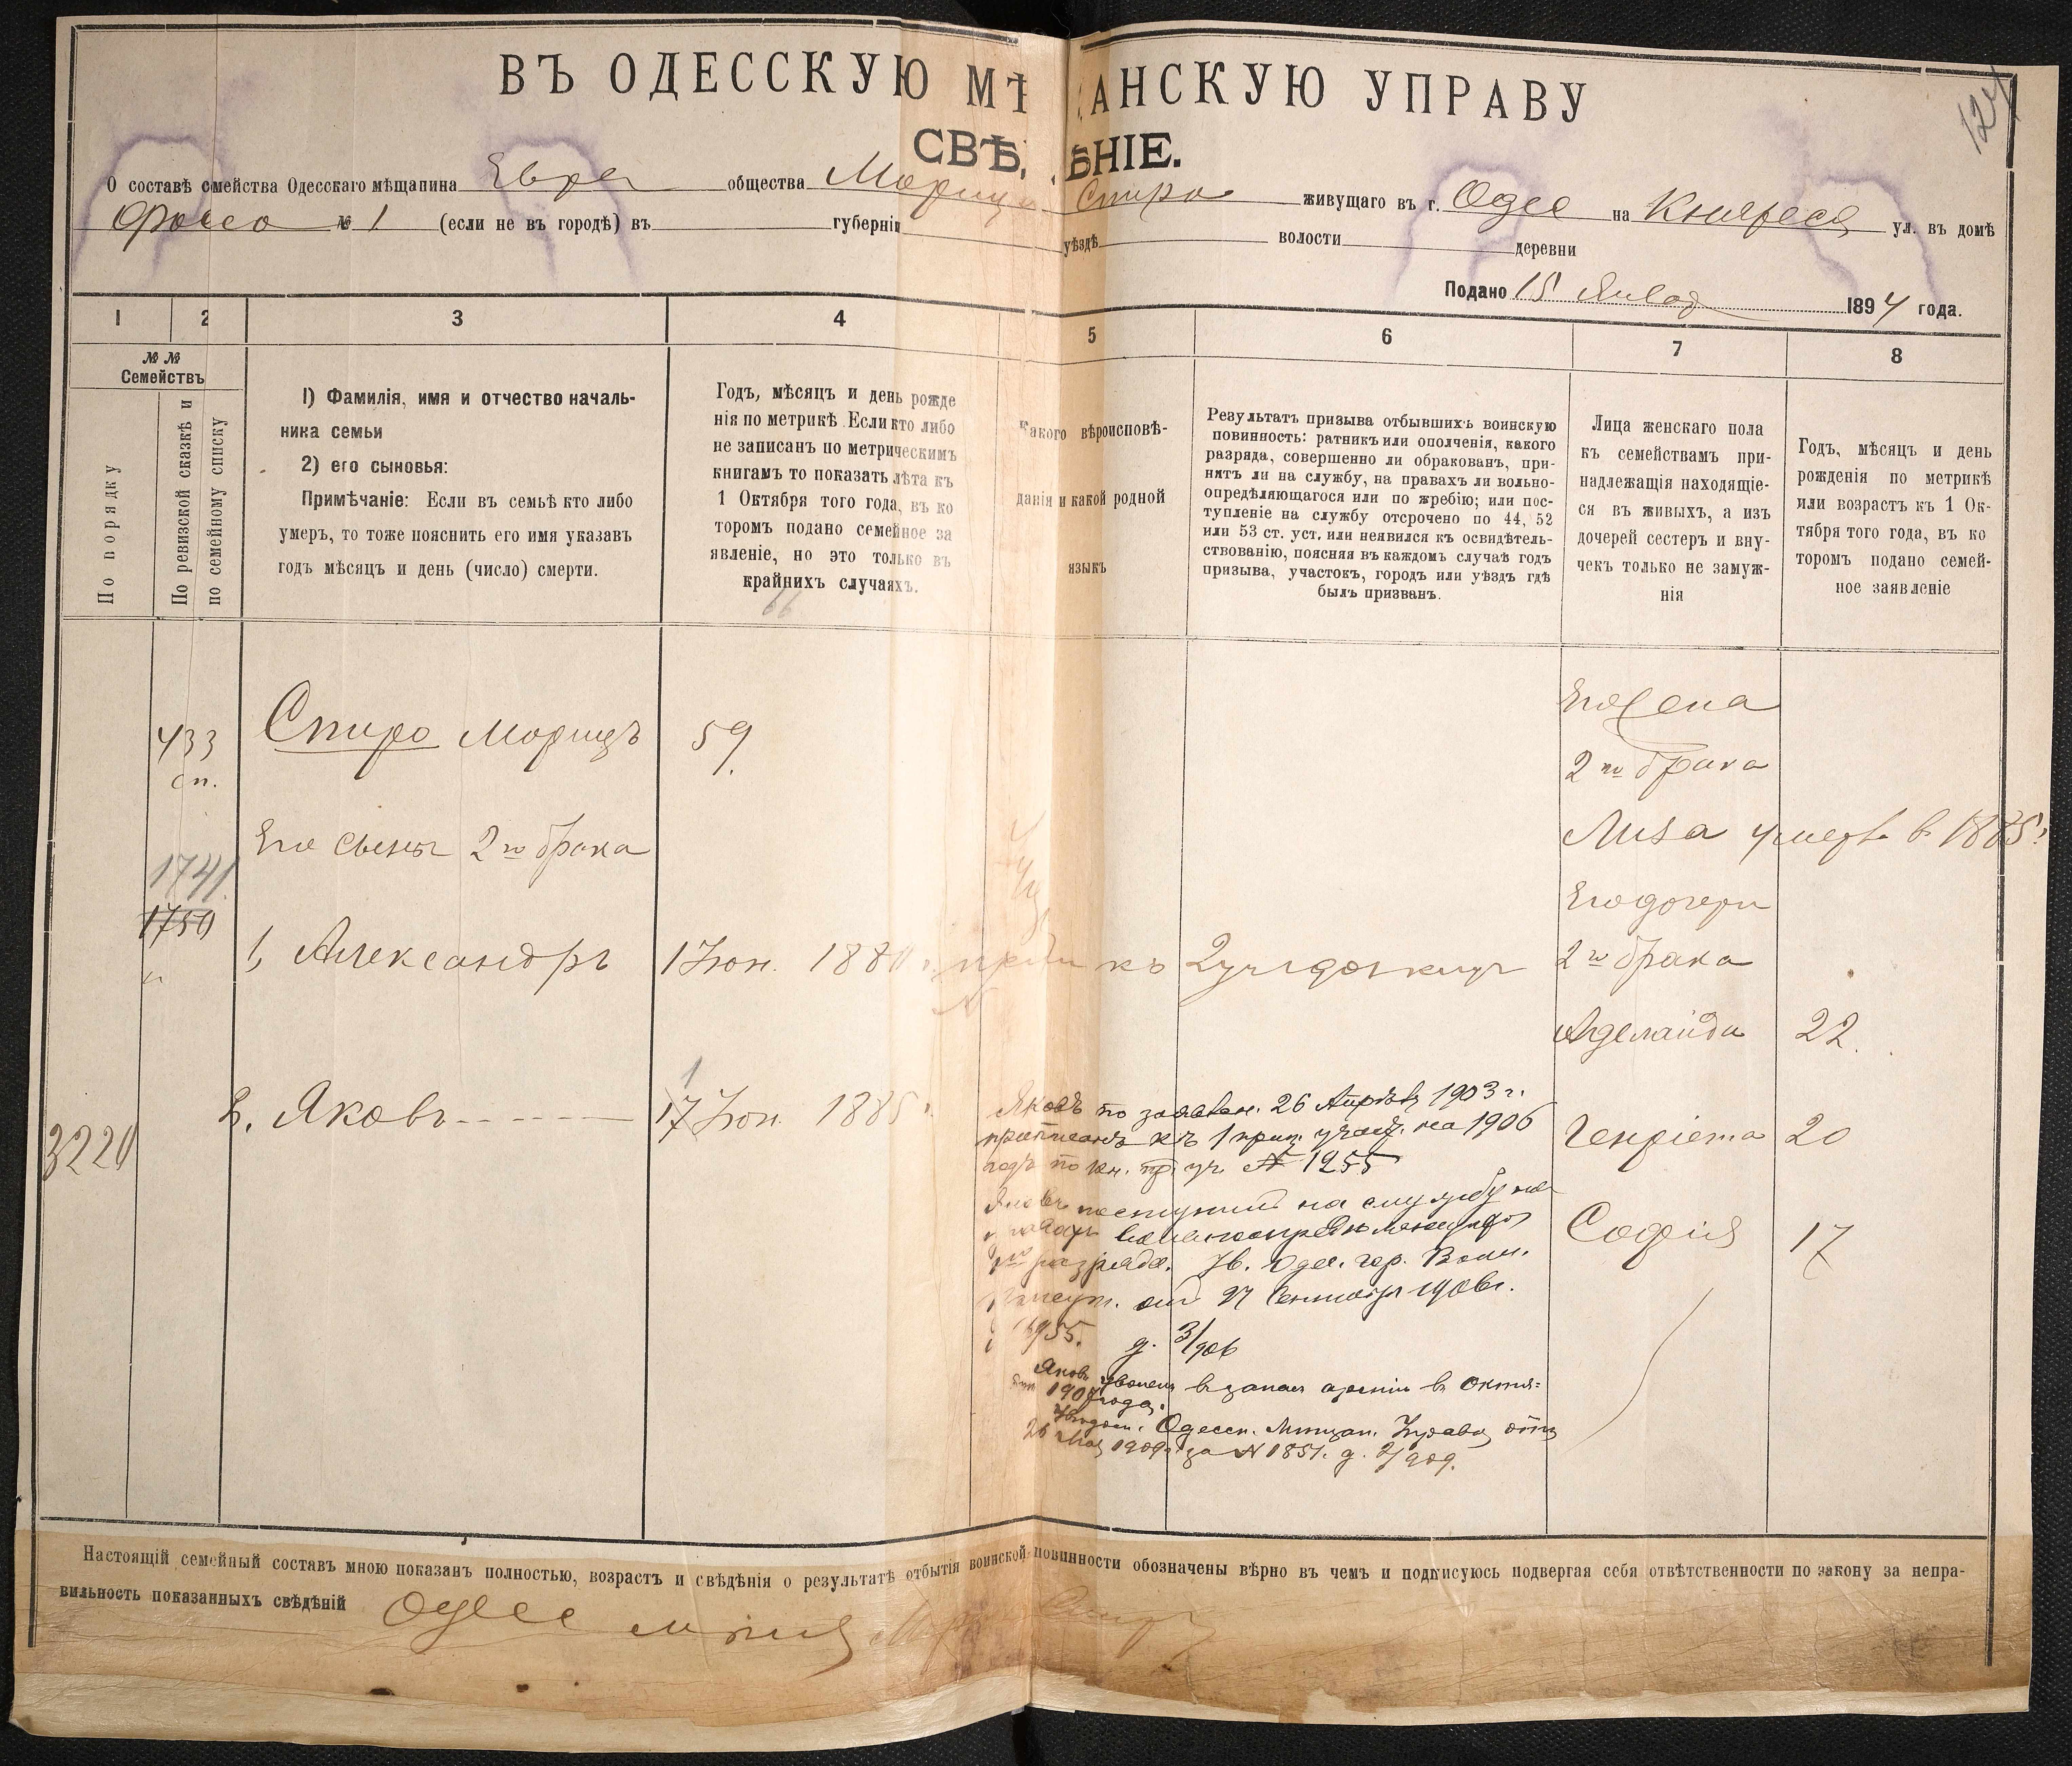 124
ВЪ ОДЕССКУЮ МѢ АНСКУЮ УПРАВУ
СВѢ ѢНІЕ.
О составѣ смейства Одесскаго мѣщанина Евре общества Мориц Спиро живущаго въ г. Одес на Княжеск ул. въ домѣ
№ 1 (если не въ городѣ) въ губерніи уѣздѣ волости деревни
Подано 15 Января 1894 года.
1 2 3 4 5 6 7 8
№ №
Семействъ
По порядку
По ревизской сказкѣ и
по семейному списку
1) Фамилія, имя и отчество началь-
ника семьи
2) его сыновья:
Примѣчаніе: Если въ семьѣ кто либо
умеръ, то тоже пояснить его имя указавъ
годъ мѣсяцъ и день (число) смерти.
Годъ, мѣсяцъ и день рожде
нія по метрикѣ. Если кто либо
не записанъ по метрическимъ
книгамъ то показать лѣта къ
1 Октября того года, въ ко
торомъ подано семейное за
явленіе, но это только въ
крайнихъ случаяхъ.
66
Какого вѣроисповѣ-
данія и какой родной
языкъ
Результатъ призыва отбывшихъ воинскую
повинность: ратникъ или ополченія, какого
разряда, совершенно ли обракованъ, при-
нятъ ли на службу, на правахъ ли вольно-
опредѣляющагося или по жребію; или пос-
тупленіе на службу отсрочено по 44, 52
или 53 ст. уст. или неявился къ освидѣтель-
ствованію, поясняя въ каждомъ случаѣ годъ
призыва, участокъ, городъ или уѣздъ гдѣ
былъ призванъ.
Лица женскаго пола
къ семействамъ при-
надлежащія находящіе-
ся въ живыхъ, а изъ
дочерей сестеръ и вну-
чекъ только не замуж-
нія
Годъ, мѣсяцъ и день
рожденія по метрикѣ
или возрастъ къ 1 Ок-
тября того года, въ ко
торомъ подано семей-
ное заявленіе
Его жена
433 Спиро Морицъ 59.
сп.
2го брака
Его сыны 2го брака
Лиза умерла в 1885г.
1741
1750
Его дочери
1, Александръ 1 Іюн. 1880 г. прип къ 2 уч гдскому
2го брака
Аделаида 22.
2. Яковъ 17 Іюн. 1885 г.
1
3220
Яковъ по заявлен. 26 Апрѣля 1903 г.
приписанъ къ 1 приз. участ. на 1906
годъ по кн. пр. уч. № 1255
Генріета 20
Яковъ поступилъ на службу на
правахъ вольноопредѣляющагося
разряда. Ув. Одес. гор. Воин.
Присут. отъ 27 Сентября 1906г.
1955. д. 3/906
Софія 17
Яковъ уволенъ в запас арміи в Октя=
1907 года.
Уведом. Одесск. Мѣщан. Управы отъ
26 Мая 1909г. за № 1851. д. 2/909.
Настоящій семейный составъ мною показанъ полностью, возрастъ и свѣдѣнія о результатѣ отбытія воинской повинности обозначены вѣрно въ чемъ и подписуюсь подвергая себя отвѣтственности по закону за непра-
вильность показанныхъ свѣдѣній Одесс